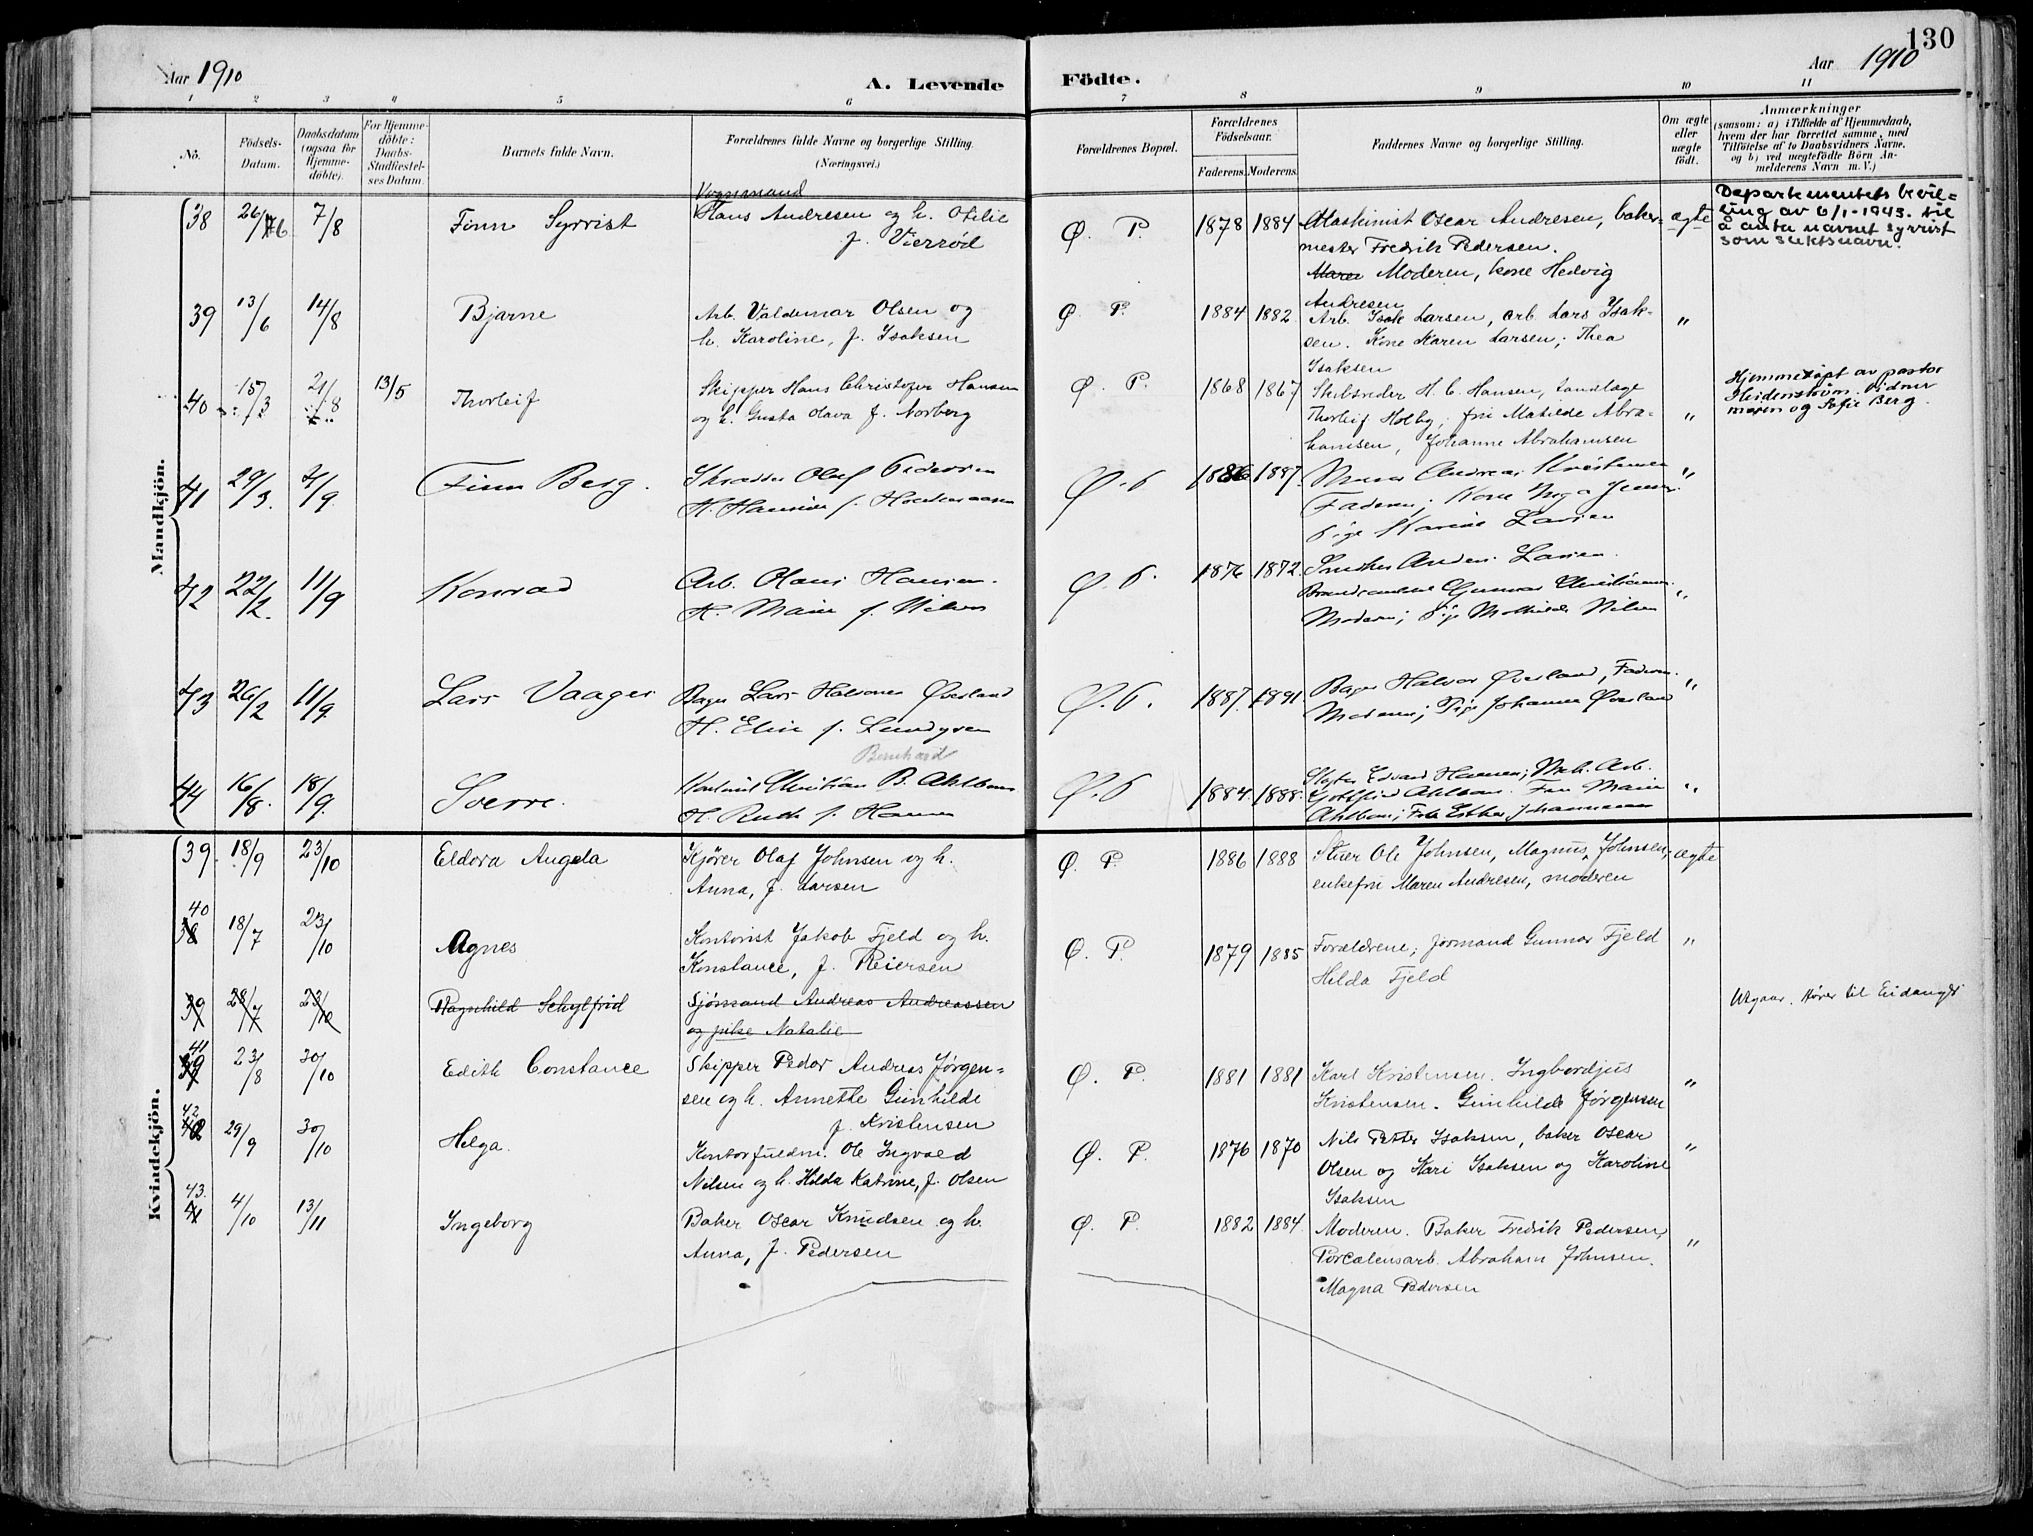 130
Aar 1910
A. Levende
Födte.
Aar 1910
1 2 3 4 5 6 7 8 9 10 11
No.
Födsels-
Datum.
Daabsdatum
(ogsaa for
Hjemme-
döbte).
For Hjemme-
döbte:
Daabs-
Stadfæstel-
ses Datum.
Barnets fulde Navn.
Forældrenes fulde Navne og borgerlige Stilling.
(Næringsvei.)
Forældrenes Bopæl.
Forældrenes
Födselsaar.
Faderens. Moderens.
Faddernes Navne og borgerlige Stilling.
Om ægte
eller
uægte
født.
Anmærkninger
(saasom: a) i Tilfælde af Hjemmedaab,
hvem der har forrettet samme, med
Tilföielse af to Daabsvidners Navne.
og b) ved uægtefödte Börn An-
melderens Navn m. V.)
Mandkjön.
38 26/6 7/8 Finn Syrrist
Vognmand
Hans Andresen og h. Otilie
f. Vierrød
Ø. P. 1878 1884
Maskinist Oscar Andresen, baker-
mester Fredrik Pedersen.
Maren Moderen, kone Hedvig
Andresen
ægte
Departementets bevil-
ling av 6/1-1943 til
å anta navnet Syrrist
som slektsnavn.
39 13/6 14/8 Bjarne
Arb. Valdemar Olsen og
h. Karoline, f. Isaksen
Ø P. 1884 1882
Arb. Isak Larsen, arb. Lars Isak-
sen. Kone Karen Larsen; Thea
Isaksen
"
40 15/3 21/8 13/5 Thorleif
Skipper Hans Christofer Hansen
og h. Gusta Olava f. Norberg
Ø. P. 1868 1867
Skibsreder H. C. Hansen, tandlæge
Thorleif Holby; fru Matilde Abra-
hamsen, Johanne Abrahamsen
"
Hjemmedøpt av pastor
Heidenstrøm. Vidner
moren og Sofie Berg.
41 29/3. 4/9. Finn Berg.
Skrædder Olaf Pedersen
H. f.
Ø. P 1886 1887.
Murer Andreas Kristensen
Faderen; Kone Inga Jensen
Pige Karine Larsen
"
42 22/2. 11/9 Konrad
Arb. Olaus Hansen.
H. Marie f. Nilsen
Ø. P. 1876 1872.
Snedker Anders Larsen.
Gunnar Christensen
Moderen; Pige Mathilde Nilsen
"
43 26/2 11/9. Lars Vaager
Bager Lars Halvorsen Øverland
H. Elise f. Lundgren
Ø. P. 1887. 1891.
Bager Halvor Øverland, Faderen.
Moderen; Pige Johanna Øverland
"
Bernhard
44 16/8. 18/9. Sverre.
Christian B. Ahlbom
H. Ruth f. Hansen
Ø. P 1884. 1888.
Slagter Edvard Hansen; Mek. Arb.
Gottfried Ahlbom. Fru Marie
Ahlbom; Frk Esther Johannessen
"
Kvindekjön.
39. 18/9 23/10 Eldora Angela
Kjører Olaf Johnsen og h.
Anna, f. Larsen
Ø P. 1886 1888
Stuer Ole Johnsen, Magnus Johnsen,
enkefru Maren Andresen, moderen
ægte
40
38 18/7 23/10 Agnes
Kontorist Jakob Fjeld og h.
Konstance, f. Reiersen
Ø. P. 1879 1885
Forældrene; Jørmand Gunnar Fjeld
Hilda Fjeld
"
39 28/7 23/10 Ragnhild Sehylfrid
Sjømand Andreas Andreassen
og pike Natalie
Utgaar. Hører til Eidanger
41
39 23/8 30/10 Edith Constance
Skipper Peder Andreas Jørgen-
sen og h. Annette Gunhilde
f. Kristensen
Ø. P. 1881 1881
Karl Kristensen. Ingbordjus
Kristensen. Gunhilde Jørgensen
"
42
40 29/9 30/10 Helga.
Kontorfuldm. Ole Ingvald
Nilsen og h. Hilda Katrine, f. Olsen
Ø. P. 1876 1870
Nils Petter Isaksen, baker Oscar
Olsen og Kari Isaksen og Karoline
Isaksen
"
43.
41 4/10 13/11 Ingeborg
Baker Oscar Knudsen og h.
Anna, f. Pedersen
Ø. P. 1882 1884.
Moderen. Baker Fredrik Pedersen,
Porcelensarb. Abraham Johnsen.
Magna Pedersen
"